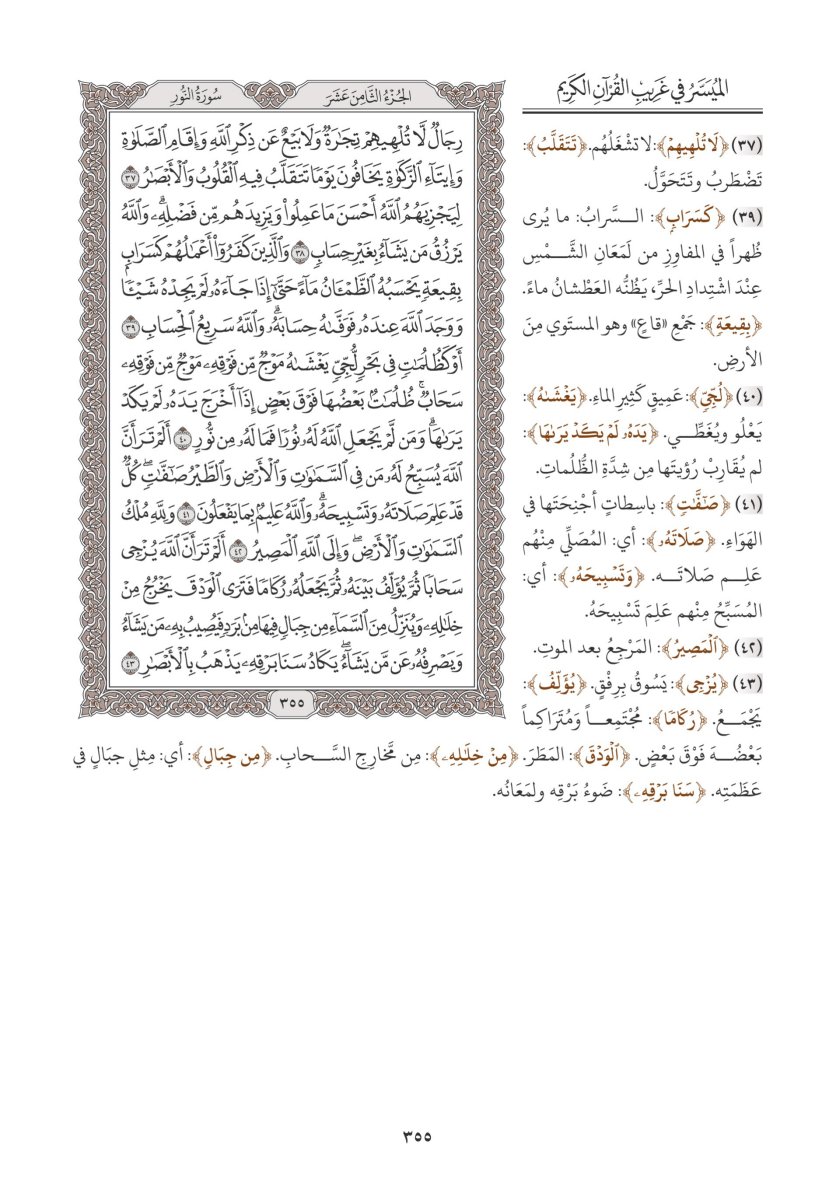 الميسر في غريب القرآن الكريم
الجزء الثامن عشر
سورة النور
رِجَالٌ لَّا تُلْهِيهِمْ تِجَٰرَةٌ وَلَا بَيْعٌ عَن ذِكْرِ ٱللَّهِ وَإِقَامِ ٱلصَّلَوٰةِ
وَإِيتَآءِ ٱلزَّكَوٰةِ يَخَافُونَ يَوْمًا تَتَقَلَّبُ فِيهِ ٱلْقُلُوبُ وَٱلْأَبْصَٰرُ ٣٧
لِيَجْزِيَهُمُ ٱللَّهُ أَحْسَنَ مَا عَمِلُوا۟ وَيَزِيدَهُم مِّن فَضْلِهِۦ وَٱللَّهُ
يَرْزُقُ مَن يَشَآءُ بِغَيْرِ حِسَابٍ ٣٨ وَٱلَّذِينَ كَفَرُوٓا۟ أَعْمَٰلُهُمْ كَسَرَابٍۭ
بِقِيعَةٍ يَحْسَبُهُ ٱلظَّمْـَٔانُ مَآءً حَتَّىٰٓ إِذَا جَآءَهُۥ لَمْ يَجِدْهُ شَيْـًٔا
وَوَجَدَ ٱللَّهَ عِندَهُۥ فَوَفَّىٰهُ حِسَابَهُۥ وَٱللَّهُ سَرِيعُ ٱلْحِسَابِ ٣٩
أَوْ كَظُلُمَٰتٍ فِى بَحْرٍ لُّجِّىٍّ يَغْشَىٰهُ مَوْجٌ مِّن فَوْقِهِۦ مَوْجٌ مِّن فَوْقِهِۦ
سَحَابٌ ۚ ظُلُمَٰتٌۢ بَعْضُهَا فَوْقَ بَعْضٍ إِذَآ أَخْرَجَ يَدَهُۥ لَمْ يَكَدْ
يَرَىٰهَا ۗ وَمَن لَّمْ يَجْعَلِ ٱللَّهُ لَهُۥ نُورًا فَمَا لَهُۥ مِن نُّورٍ ٤٠ أَلَمْ تَرَ أَنَّ
ٱللَّهَ يُسَبِّحُ لَهُۥ مَن فِى ٱلسَّمَٰوَٰتِ وَٱلْأَرْضِ وَٱلطَّيْرُ صَٰٓفَّٰتٍ ۖ كُلٌّ
قَدْ عَلِمَ صَلَاتَهُۥ وَتَسْبِيحَهُۥ ۗ وَٱللَّهُ عَلِيمٌۢ بِمَا يَفْعَلُونَ ٤١ وَلِلَّهِ مُلْكُ
ٱلسَّمَٰوَٰتِ وَٱلْأَرْضِ ۖ وَإِلَى ٱللَّهِ ٱلْمَصِيرُ ٤٢ أَلَمْ تَرَ أَنَّ ٱللَّهَ يُزْجِى
سَحَابًا ثُمَّ يُؤَلِّفُ بَيْنَهُۥ ثُمَّ يَجْعَلُهُۥ رُكَامًا فَتَرَى ٱلْوَدْقَ يَخْرُجُ مِنْ
خِلَٰلِهِۦ وَيُنَزِّلُ مِنَ ٱلسَّمَآءِ مِن جِبَالٍ فِيهَا مِنۢ بَرَدٍ فَيُصِيبُ بِهِۦ مَن يَشَآءُ
وَيَصْرِفُهُۥ عَن مَّن يَشَآءُ ۖ يَكَادُ سَنَا بَرْقِهِۦ يَذْهَبُ بِٱلْأَبْصَٰرِ ٤٣
٣٥٥
(٣٧) ﴿لَا تُلْهِيهِمْ﴾: لا تشْغَلُهُم. ﴿تَتَقَلَّبُ﴾:
تَضْطَربُ وتَتَحَوَّلُ.
(٣٩) ﴿كَسَرَابٍ﴾: السَّرابُ: ما يُرى
ظُهراً في المفاوِزِ من لَمَعَانِ الشَّمْسِ
عِنْدَ اشْتِدادِ الحرِّ، يَظُنُّه العَطْشانُ ماءً.
﴿بِقِيعَةٍ﴾: جَمْعِ «قاعٍ» وهو المستَوي مِنَ
الأرضِ.
(٤٠) ﴿لُجِّيٍّ﴾: عَمِيقٍ كَثِيرِ الماءِ. ﴿يَغْشَىٰهُ﴾:
يَعْلُو ويُغَطِّي. ﴿يَدَهُۥ لَمْ يَكَدْ يَرَىٰهَا﴾:
لم يُقَارِبْ رُؤيتَها مِن شِدَّةِ الظُّلُماتِ.
(٤١) ﴿صَٰٓفَّٰتٍ﴾: باسِطاتٍ أجْنِحَتَها في
الهَوَاءِ. ﴿صَلَاتَهُۥ﴾: أي: المُصَلِّي مِنْهُم
عَلِمَ صَلاتَه. ﴿وَتَسْبِيحَهُۥ﴾: أي:
المُسَبِّحُ مِنْهم عَلِمَ تَسْبِيحَهُ.
(٤٢) ﴿ٱلْمَصِيرُ﴾: المَرْجِعُ بعد الموتِ.
(٤٣) ﴿يُزْجِى﴾: يَسُوقُ بِرِفْقٍ. ﴿يُؤَلِّفُ﴾:
يَجْمَعُ. ﴿رُكَامًا﴾: مُجْتَمِعاً وَمُتَرَاكِماً
بَعْضُهُ فَوْقَ بَعْضٍ. ﴿ٱلْوَدْقَ﴾: المَطَرَ. ﴿مِنْ خِلَٰلِهِۦ﴾: مِن مَّخارِجِ السَّحابِ. ﴿مِن جِبَالٍ﴾: أي: مِثلِ جبَالٍ في
عَظَمَتِه. ﴿سَنَا بَرْقِهِۦ﴾: ضَوءُ بَرْقِه ولمَعَانُه.
٣٥٥